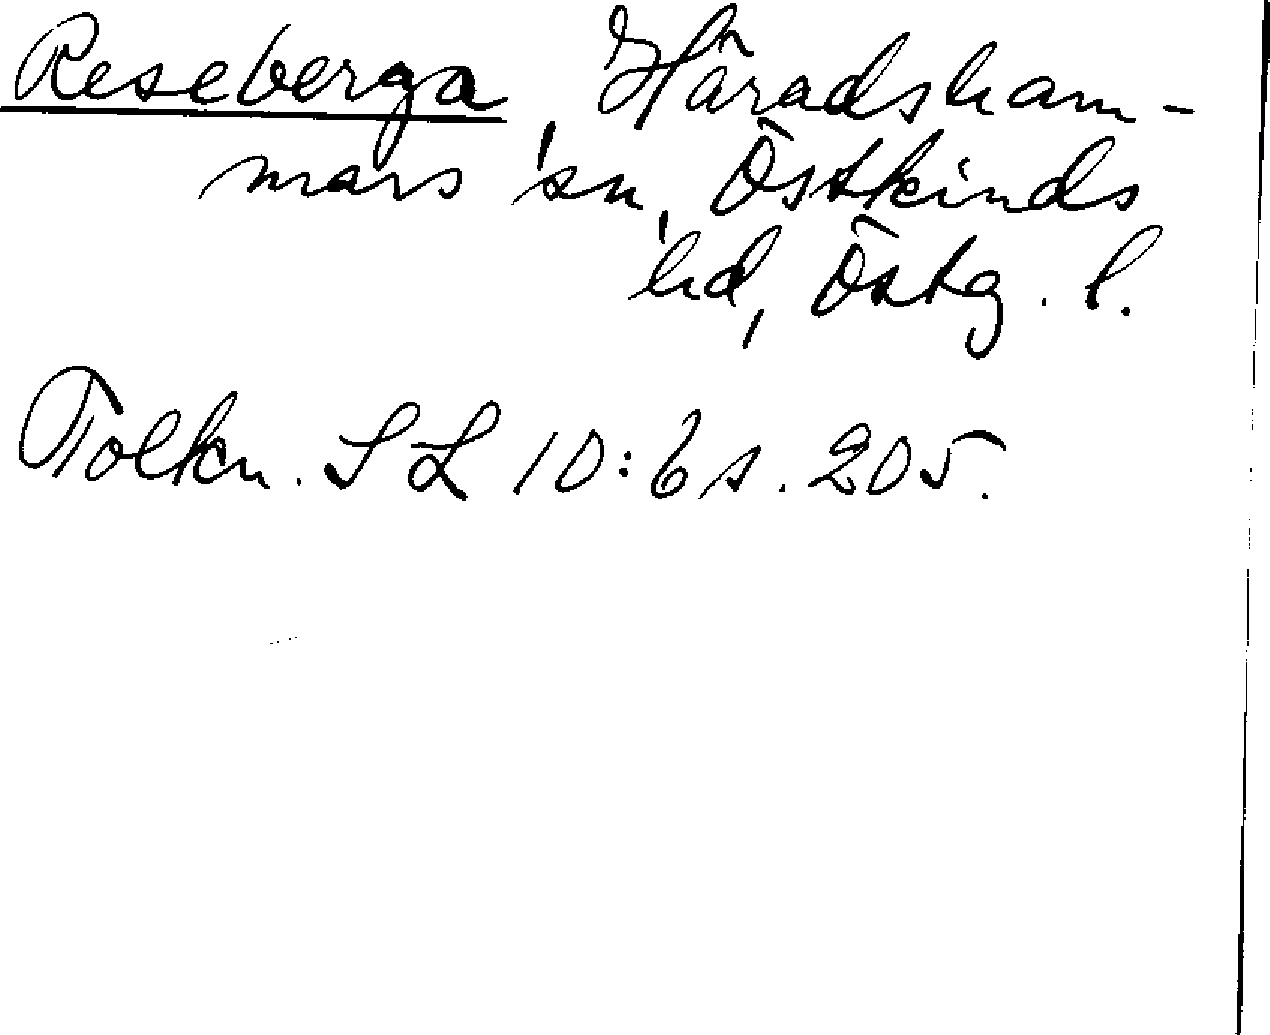 Reseberga, Häradsham-
mars sn, Östkinds
hd, Östg. l.
Tolkn. SL 10:6 s. 205.